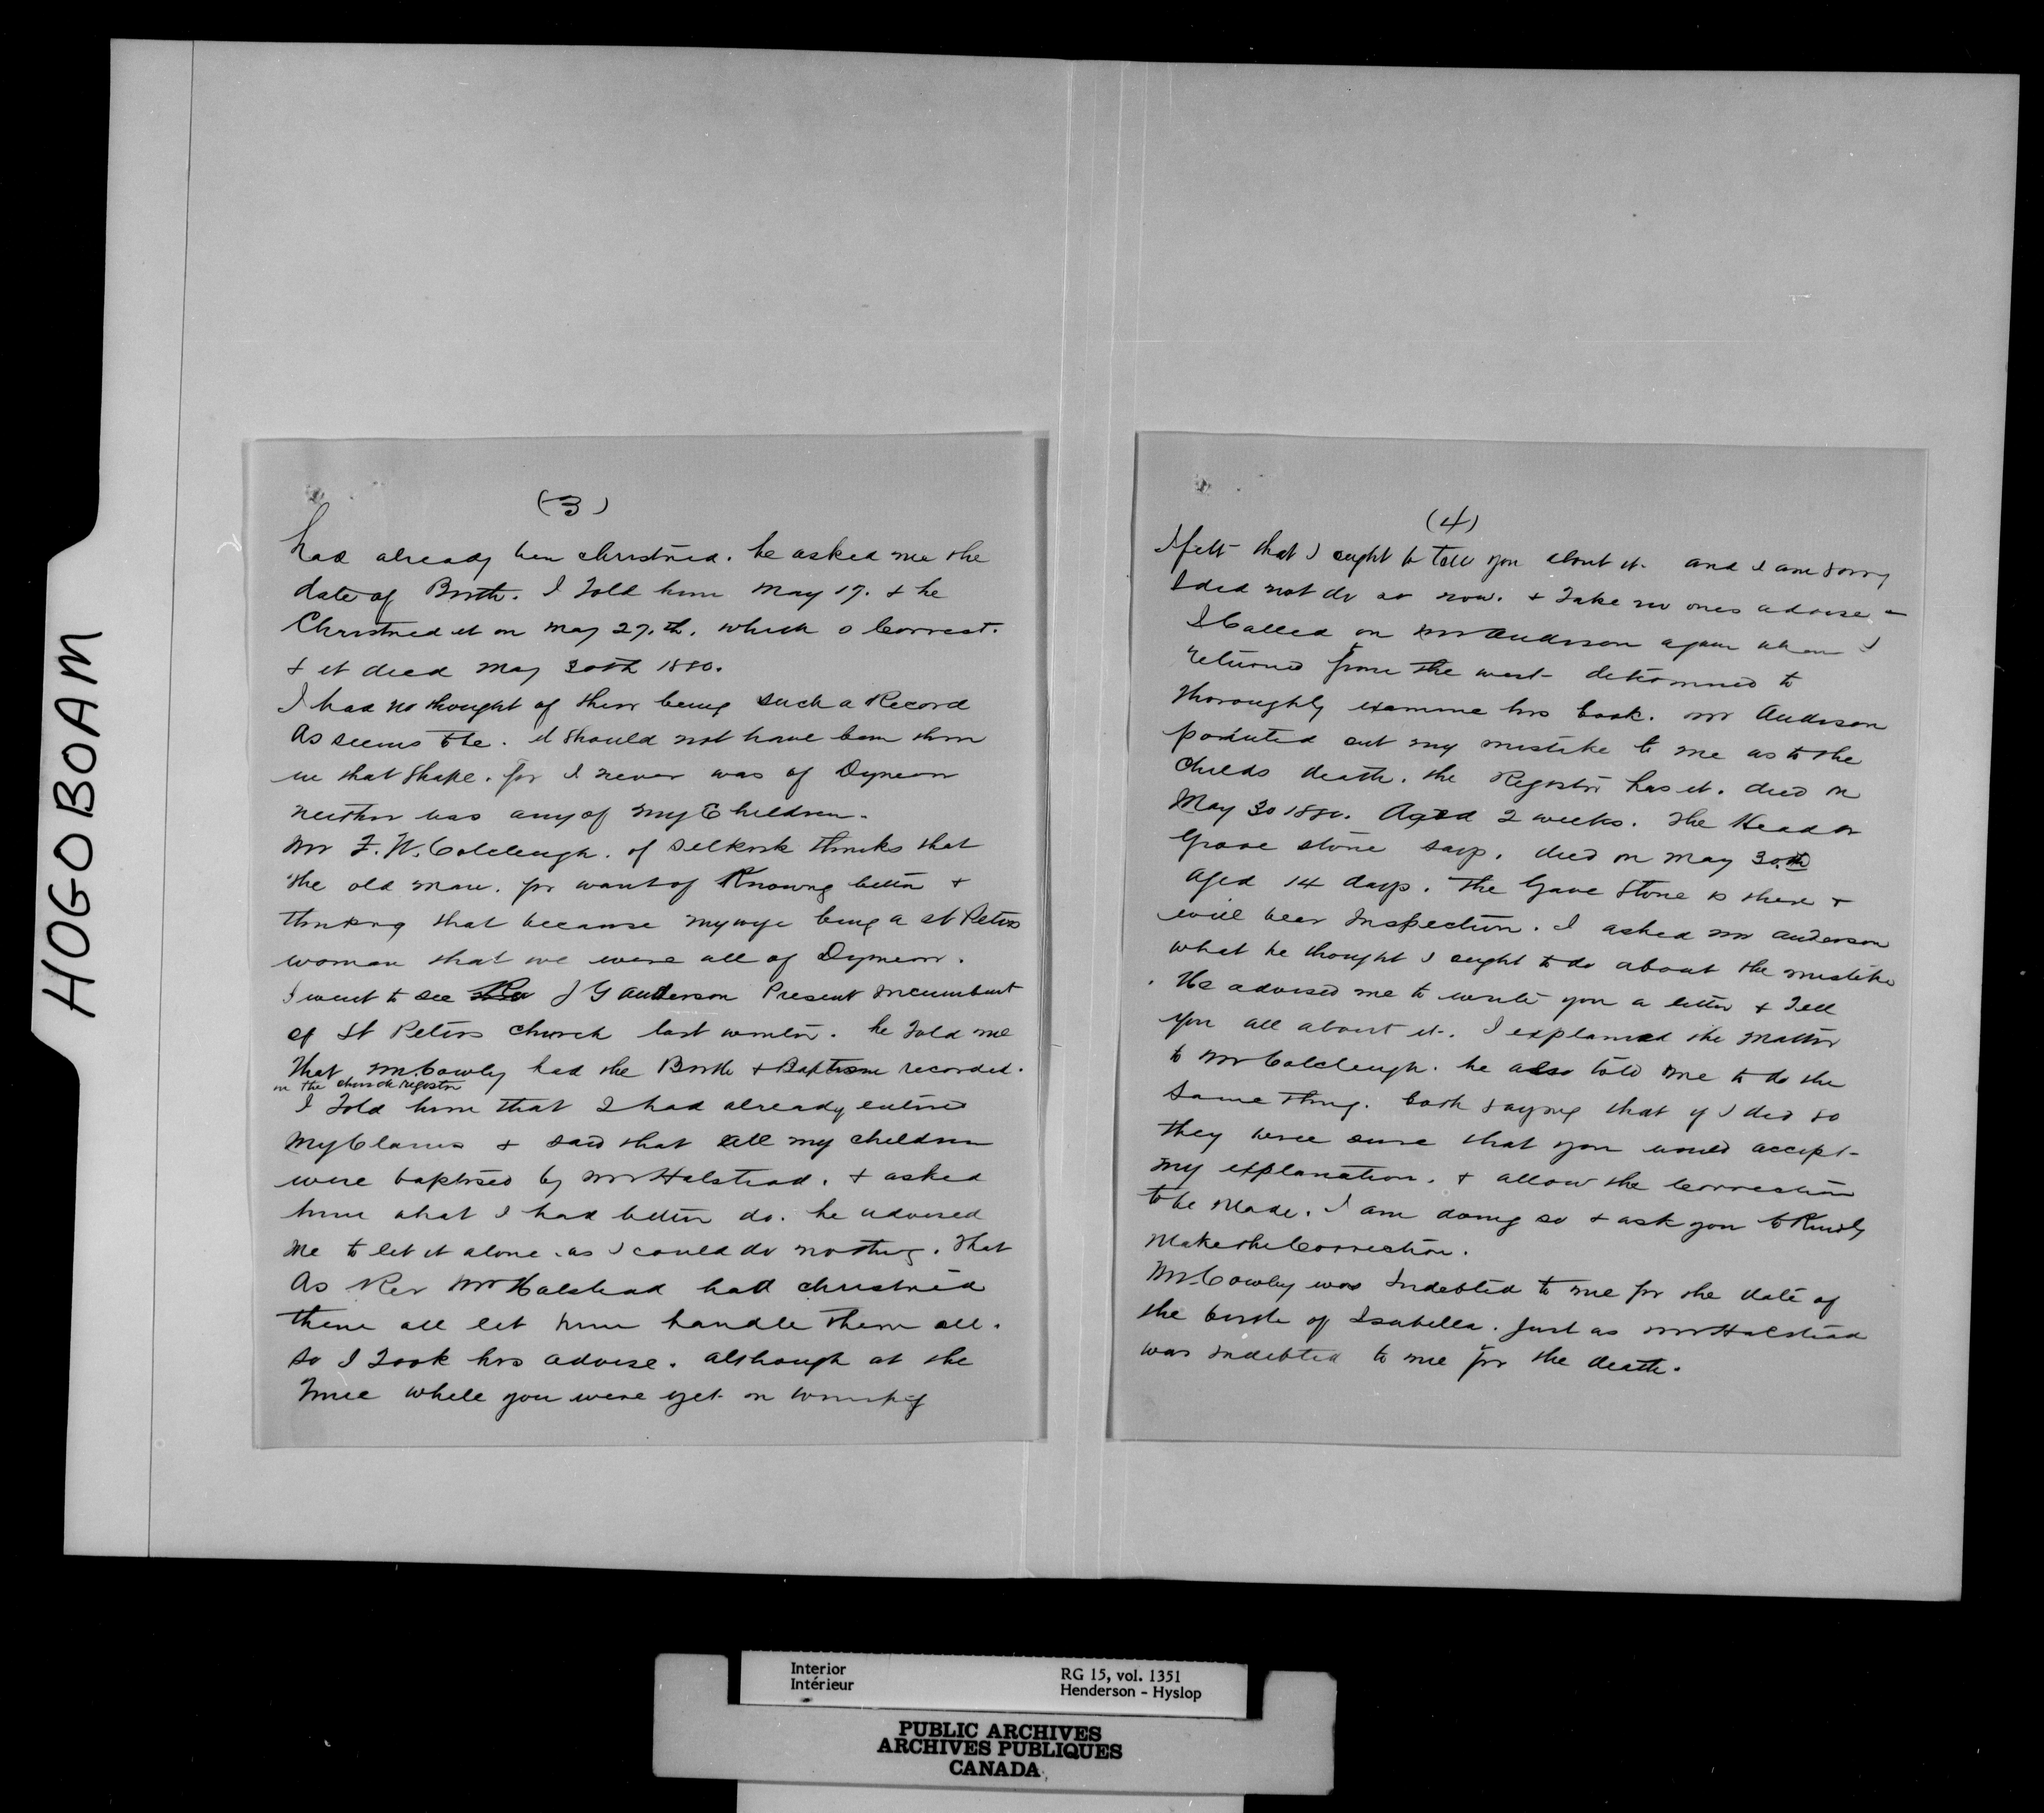 HOGOBOAM
(3)
had already been christned. he asked me the
date of Birth. I told him May 17. & he
Christned it on May 27.th. which is Correct.
& it died May 30th 1880.
I had no thought of their being such a Record
As seems to be. it should not have been there
in that shape. for I never was of Dynevor
neither was any of my Children.
Mr F. W. Colcleugh. of Selkirk thinks that
the old man. for want of Knowing better &
thinking that because my wife being a St Peters
woman that we were all of Dynevor.
I went to see Rev J G Anderson Present Incumbent
of St Peters Church last winter. he told me
that Mr. Cowley had the Birth & Baptism recorded.
in the church register
I told him that I had already entered
My Claims & said that all my children
were baptised by Mr Halstead. & asked
him what I had better do. he advised
me to let it alone. as I could do nothing. that
As Rev Mr Halstead had christned
them all let him handle them all.
So I took his advise. although at the
time while you were yet in Winnipeg
(4)
I felt that I ought to tell you about it. and I am sorry
I did not do so now. & take no ones advise
I Called on Mr Anderson again when I
returned from the west determined to
thoroughly examine his book. Mr Anderson
pointed out my mistake to me as to the
Childs death. the Register has it. died on
May 30 1880. Aged 2 weeks. The Head or
Grave stone says. died on May 30.th
aged 14 days. The Gave Stone is there &
will bear Inspection. I asked Mr Anderson
what he thought I ought to do about the mistake
. He advised me to write you a letter & Tell
you all about it. I explained the matter
to Mr Colcleugh. he also told me to do the
same thing. both saying that if I did so
they were sure that you would accept
my explanation. & allow the Correction
to be Made. I am doing so & ask you to Kindly
Make the Correction.
Mr. Cowley was Indebted to me for the date of
the birth of Isabella. Just as Mr Halstead
was indebted to me for the death.
Interior
Intérieur
RG 15, vol. 1351
Henderson - Hyslop
PUBLIC ARCHIVES
ARCHIVES PUBLIQUES
CANADA